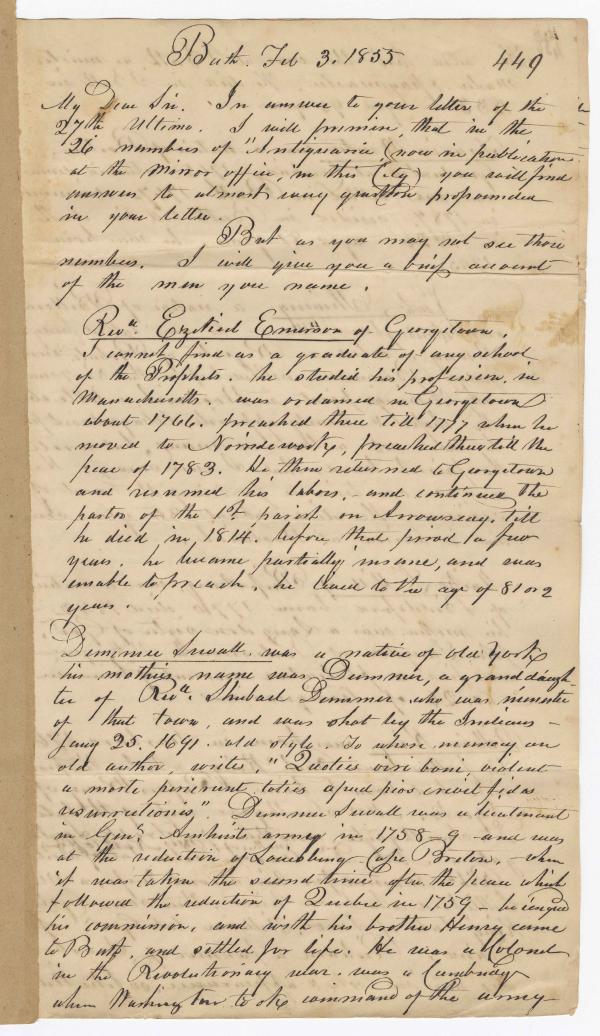 Bath. Feb 3. 1855
449
My Dear Sir. In answer to your letter of the
27th Ultimo. I will premise, that in the
26 numbers of "Antiquaria (now in publication
at the Mirror office, in this City) you will find
answers to almost every question propounded
in your letter.
But as you may not see those
numbers. I will give you a brief account
of the men you name.
Revd. Ezekiel Emerson of Georgetown.
I cannot find as a graduate of any school
of the Prophets. he studied his profession, in
Massachusetts. was ordained in Georgetown
about 1766. preached there till 1777 when he
moved to Norridgewock, preached there till the
peace of 1783. He then returned to Georgetown
and resumed his labors, - and continued the
pastor of the 1st. parish on Arrowseag. till
he died in, 1814. before that period a few
years. he became partially insane, and was
unable to preach. he lived to the age of 81 or 2
years.
Dummer Sewall. was a native of old York
his mothers name was Dummer, a granddaugh-
ter of Revd. Shubael Dummer who was minister
of that town, and was shot by the Indians -
Jany 25. 1691. old style. To whose memory an
old author, writes, "Quoties viri boni, violent
a morte perierunt toties apud pios crevit fidas
resurrectionis". Dummer Sewall was a lieutenant
in Genl. Amhersts army in 1758-9 - and was
at the reduction of Louisburg Cape Breton, - when
it was taken the second time after the peace which
followed the reduction of Quebec in 1759 - he resigned
his commission, and with his brother Henry came
to Bath, and settled for life. He was a Colonel
in the Revolutionary war. was a Cambridge
when Washington took command of the army